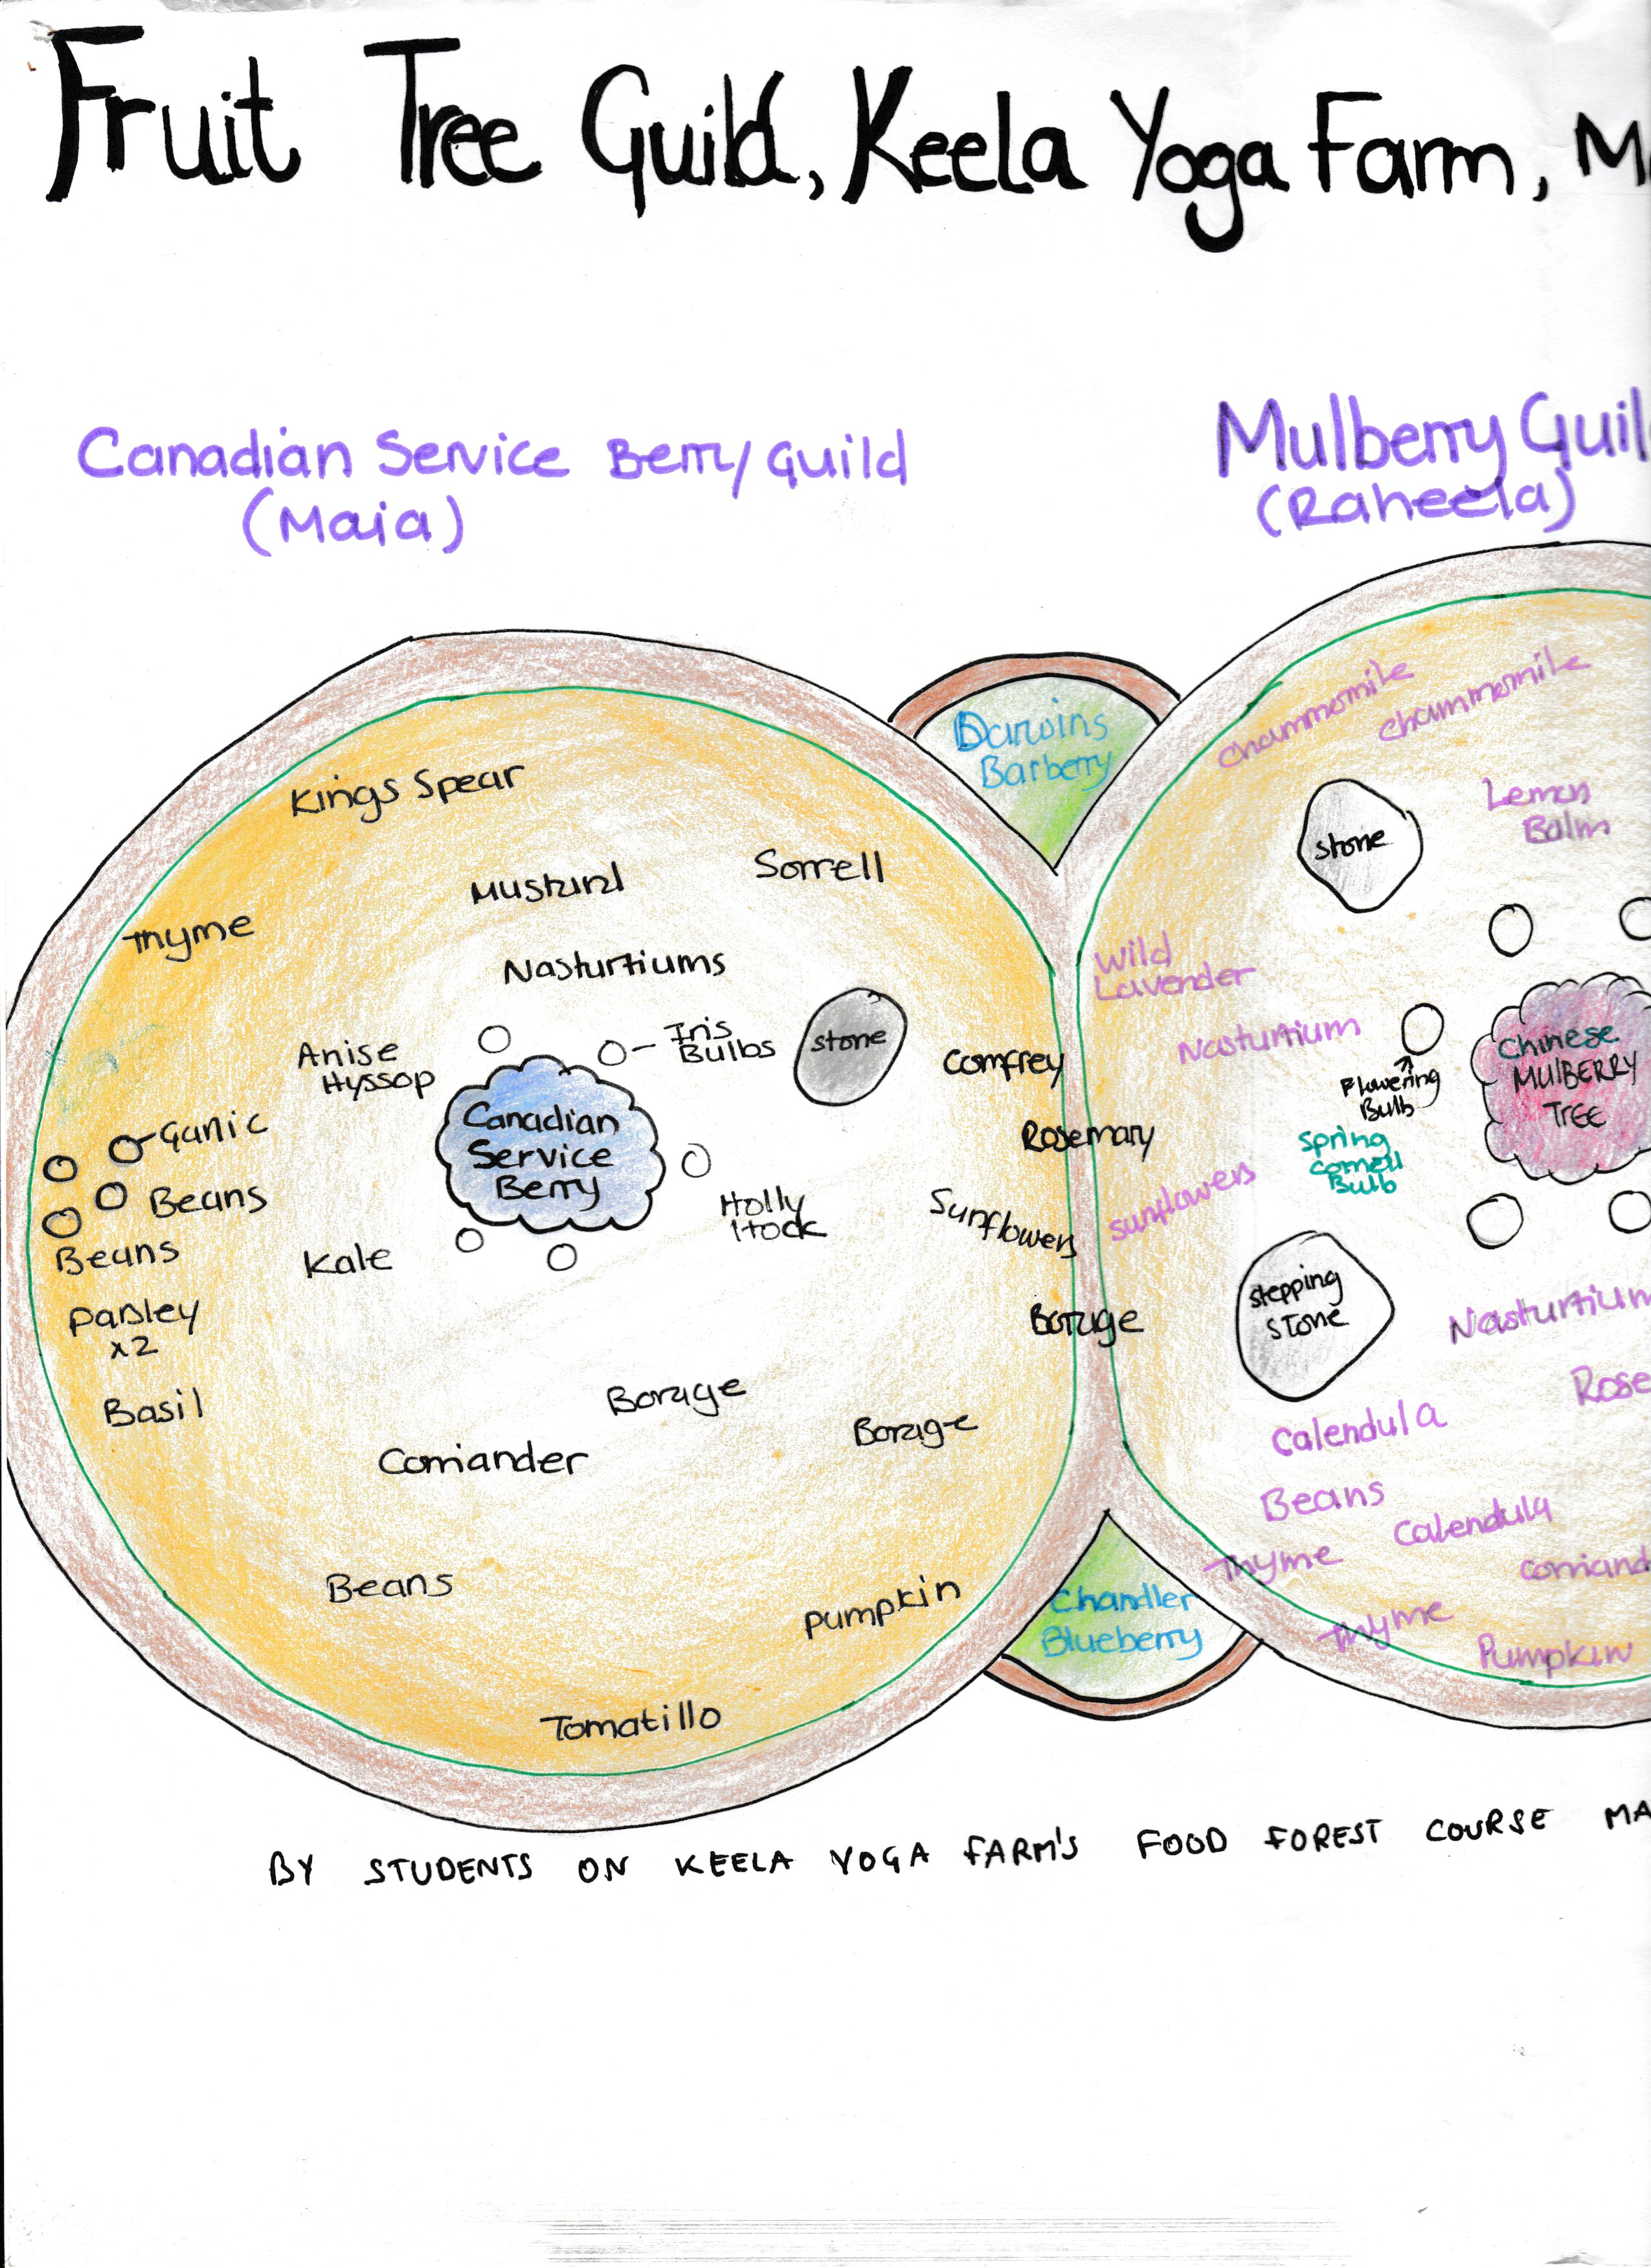 Fruit Tree Guild, Keela Yoga Farm,
Canadian Service Berry Guild
(Maia)
Mulberry Guil
(Raheela)
Darwins
Barberry
Kings Spear
Mustard
Sorrell
Thyme
Nasturtiums
Iris
Bulbs
stone
Anise
Hyssop
Comfrey
Canadian
Service
Berry
Garlic
Beans
Beans
Parsley
x2
Basil
Kale
Holly
Hock
Rosemary
Sunflowers
Borage
Borage
Borage
Corriander
Beans
Pumpkin
Tomatillo
chammomile
chammomile
stone
Lemon
Balm
Wild
Lavender
Nasturtium
Flowering
Bulb
Chinese
MULBERRY
TREE
Spring
Bulb
sunflowers
stepping
STone
Nasturtium
Rose
Calendula
Beans
Calendula
Thyme
corriand
Thyme
Pumpkin
Chandler
Blueberry
BY STUDENTS ON KEELA YOGA FARM'S FOOD FOREST COURSE MA